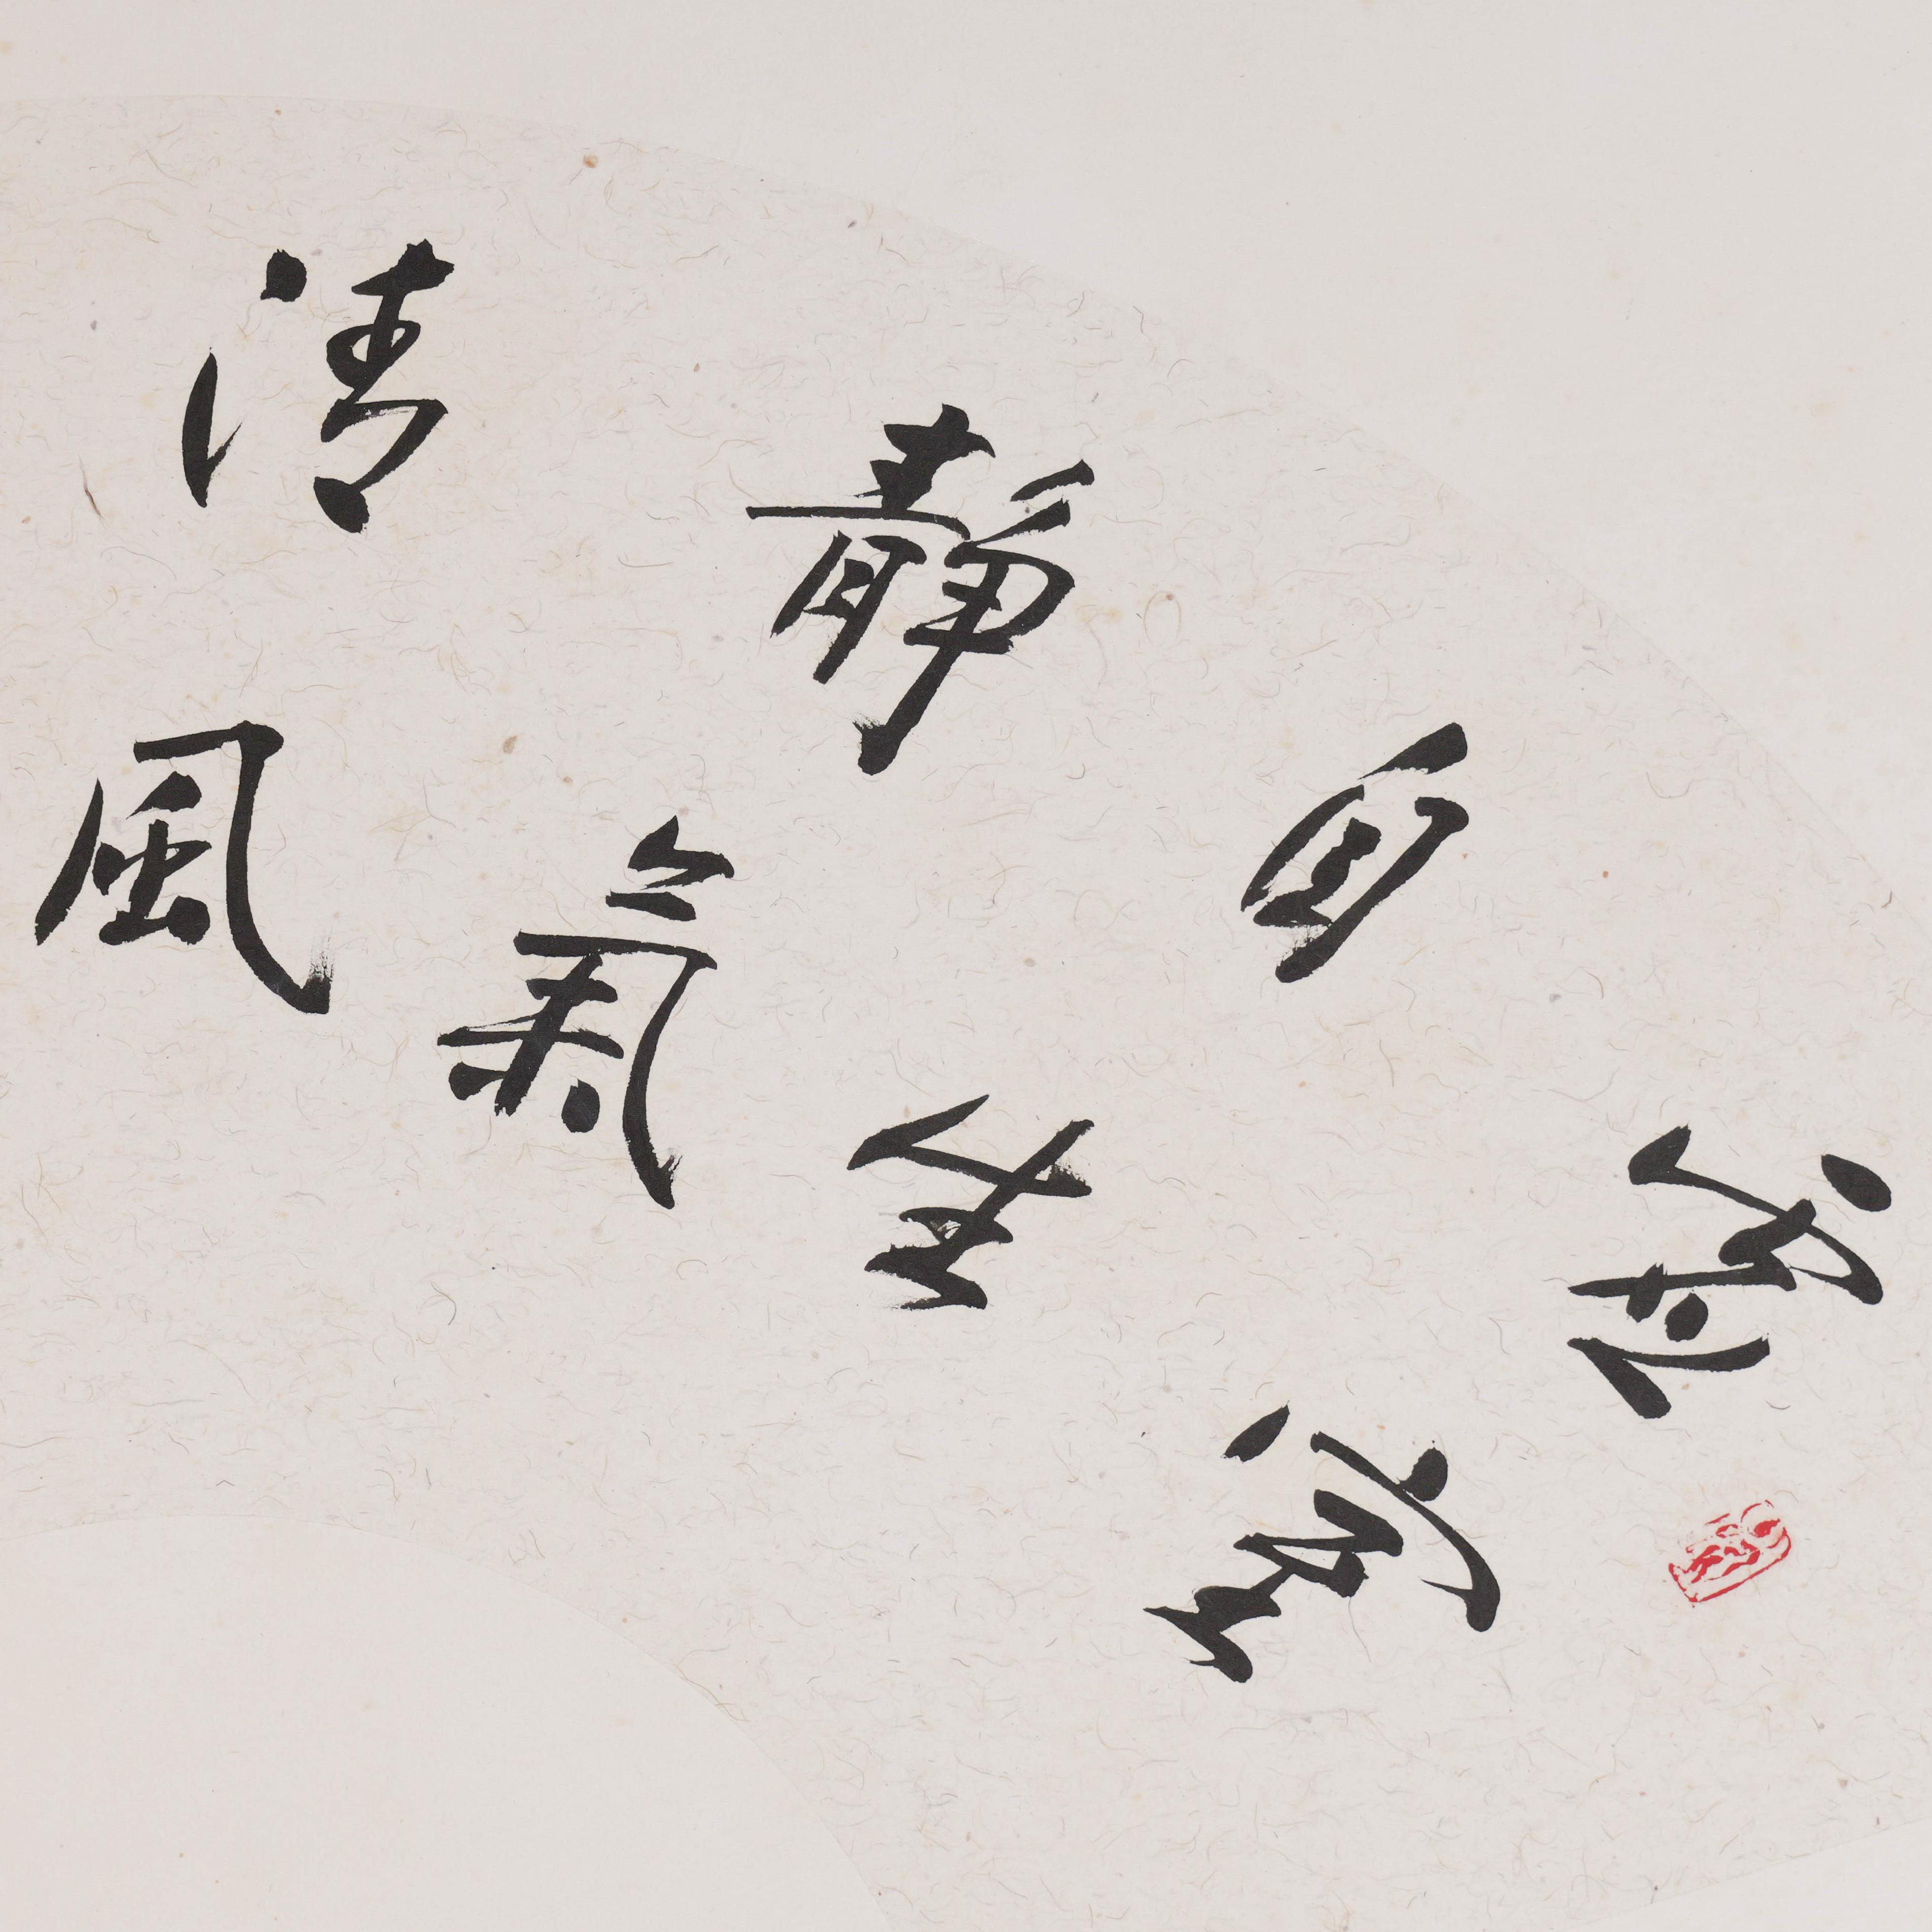 虛室
自生
靜氣
清風